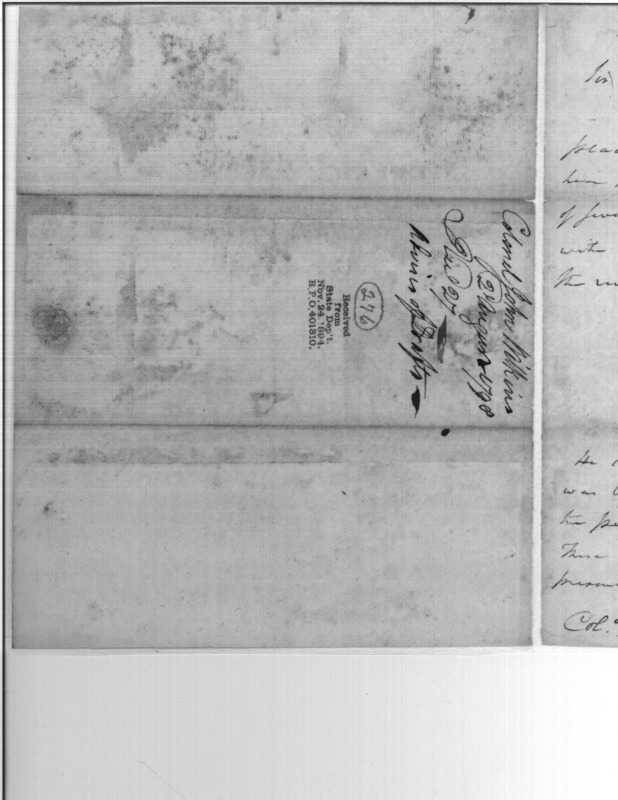 Colonel John Wilkins
2 August 1798
Rec'd 27
Advice of Drafts
276
Received
from
State Dep't.
Nov. 24. 1894.
R.P.O. 401810.
Sir
him
of
with
the
He
was
the
These
Col.